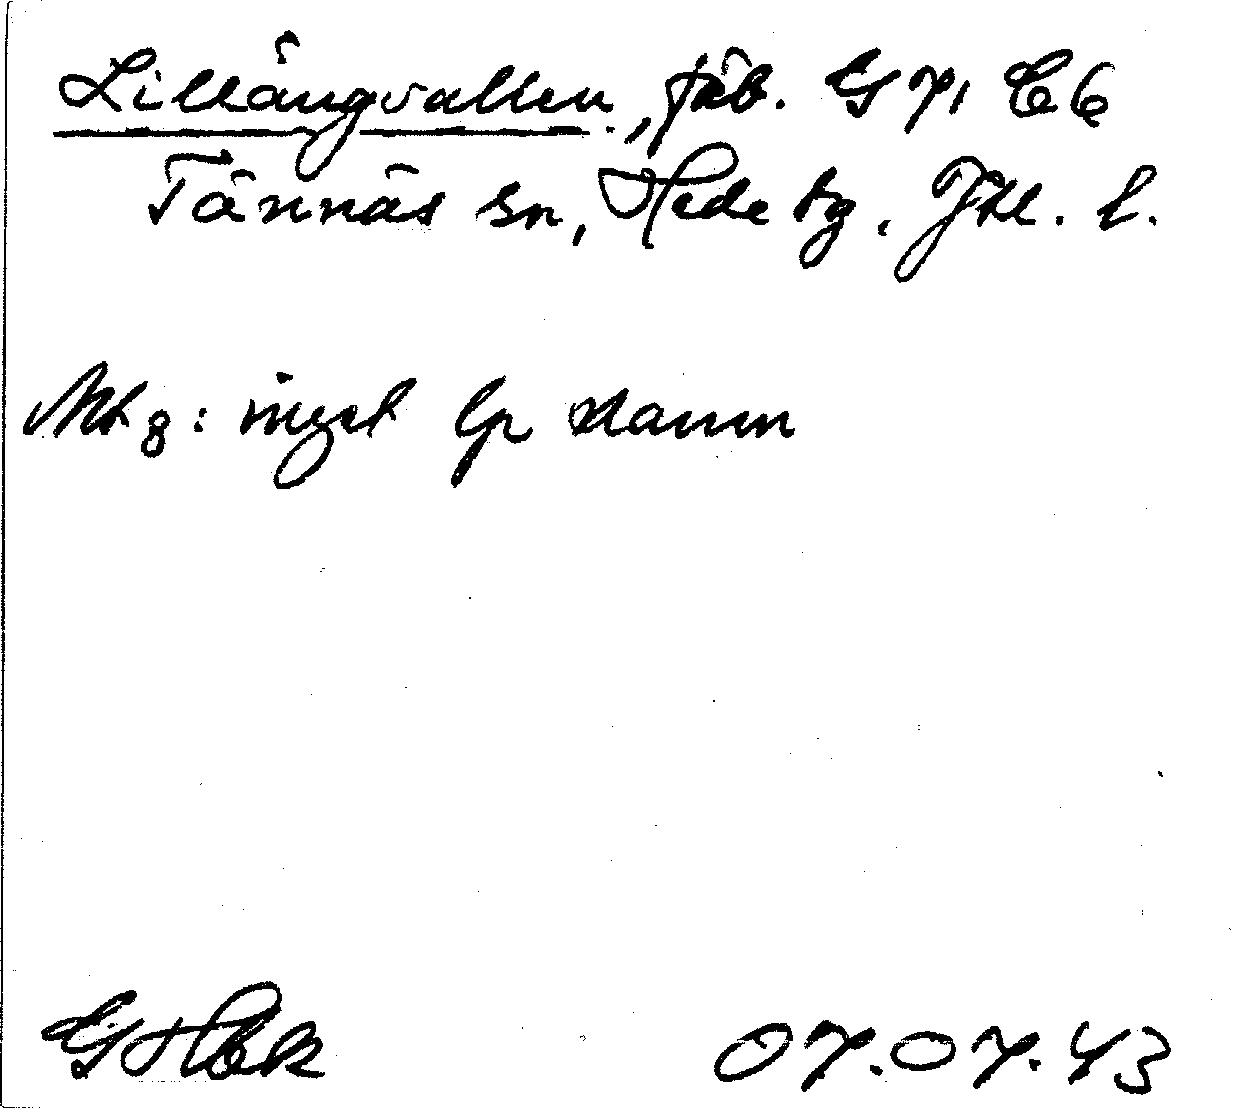 Lillängvallen, fäb. G 71 C6
Tännäs sn, Hede tg. Jtl. l.
Mtg: inget lp namn
07.07.43